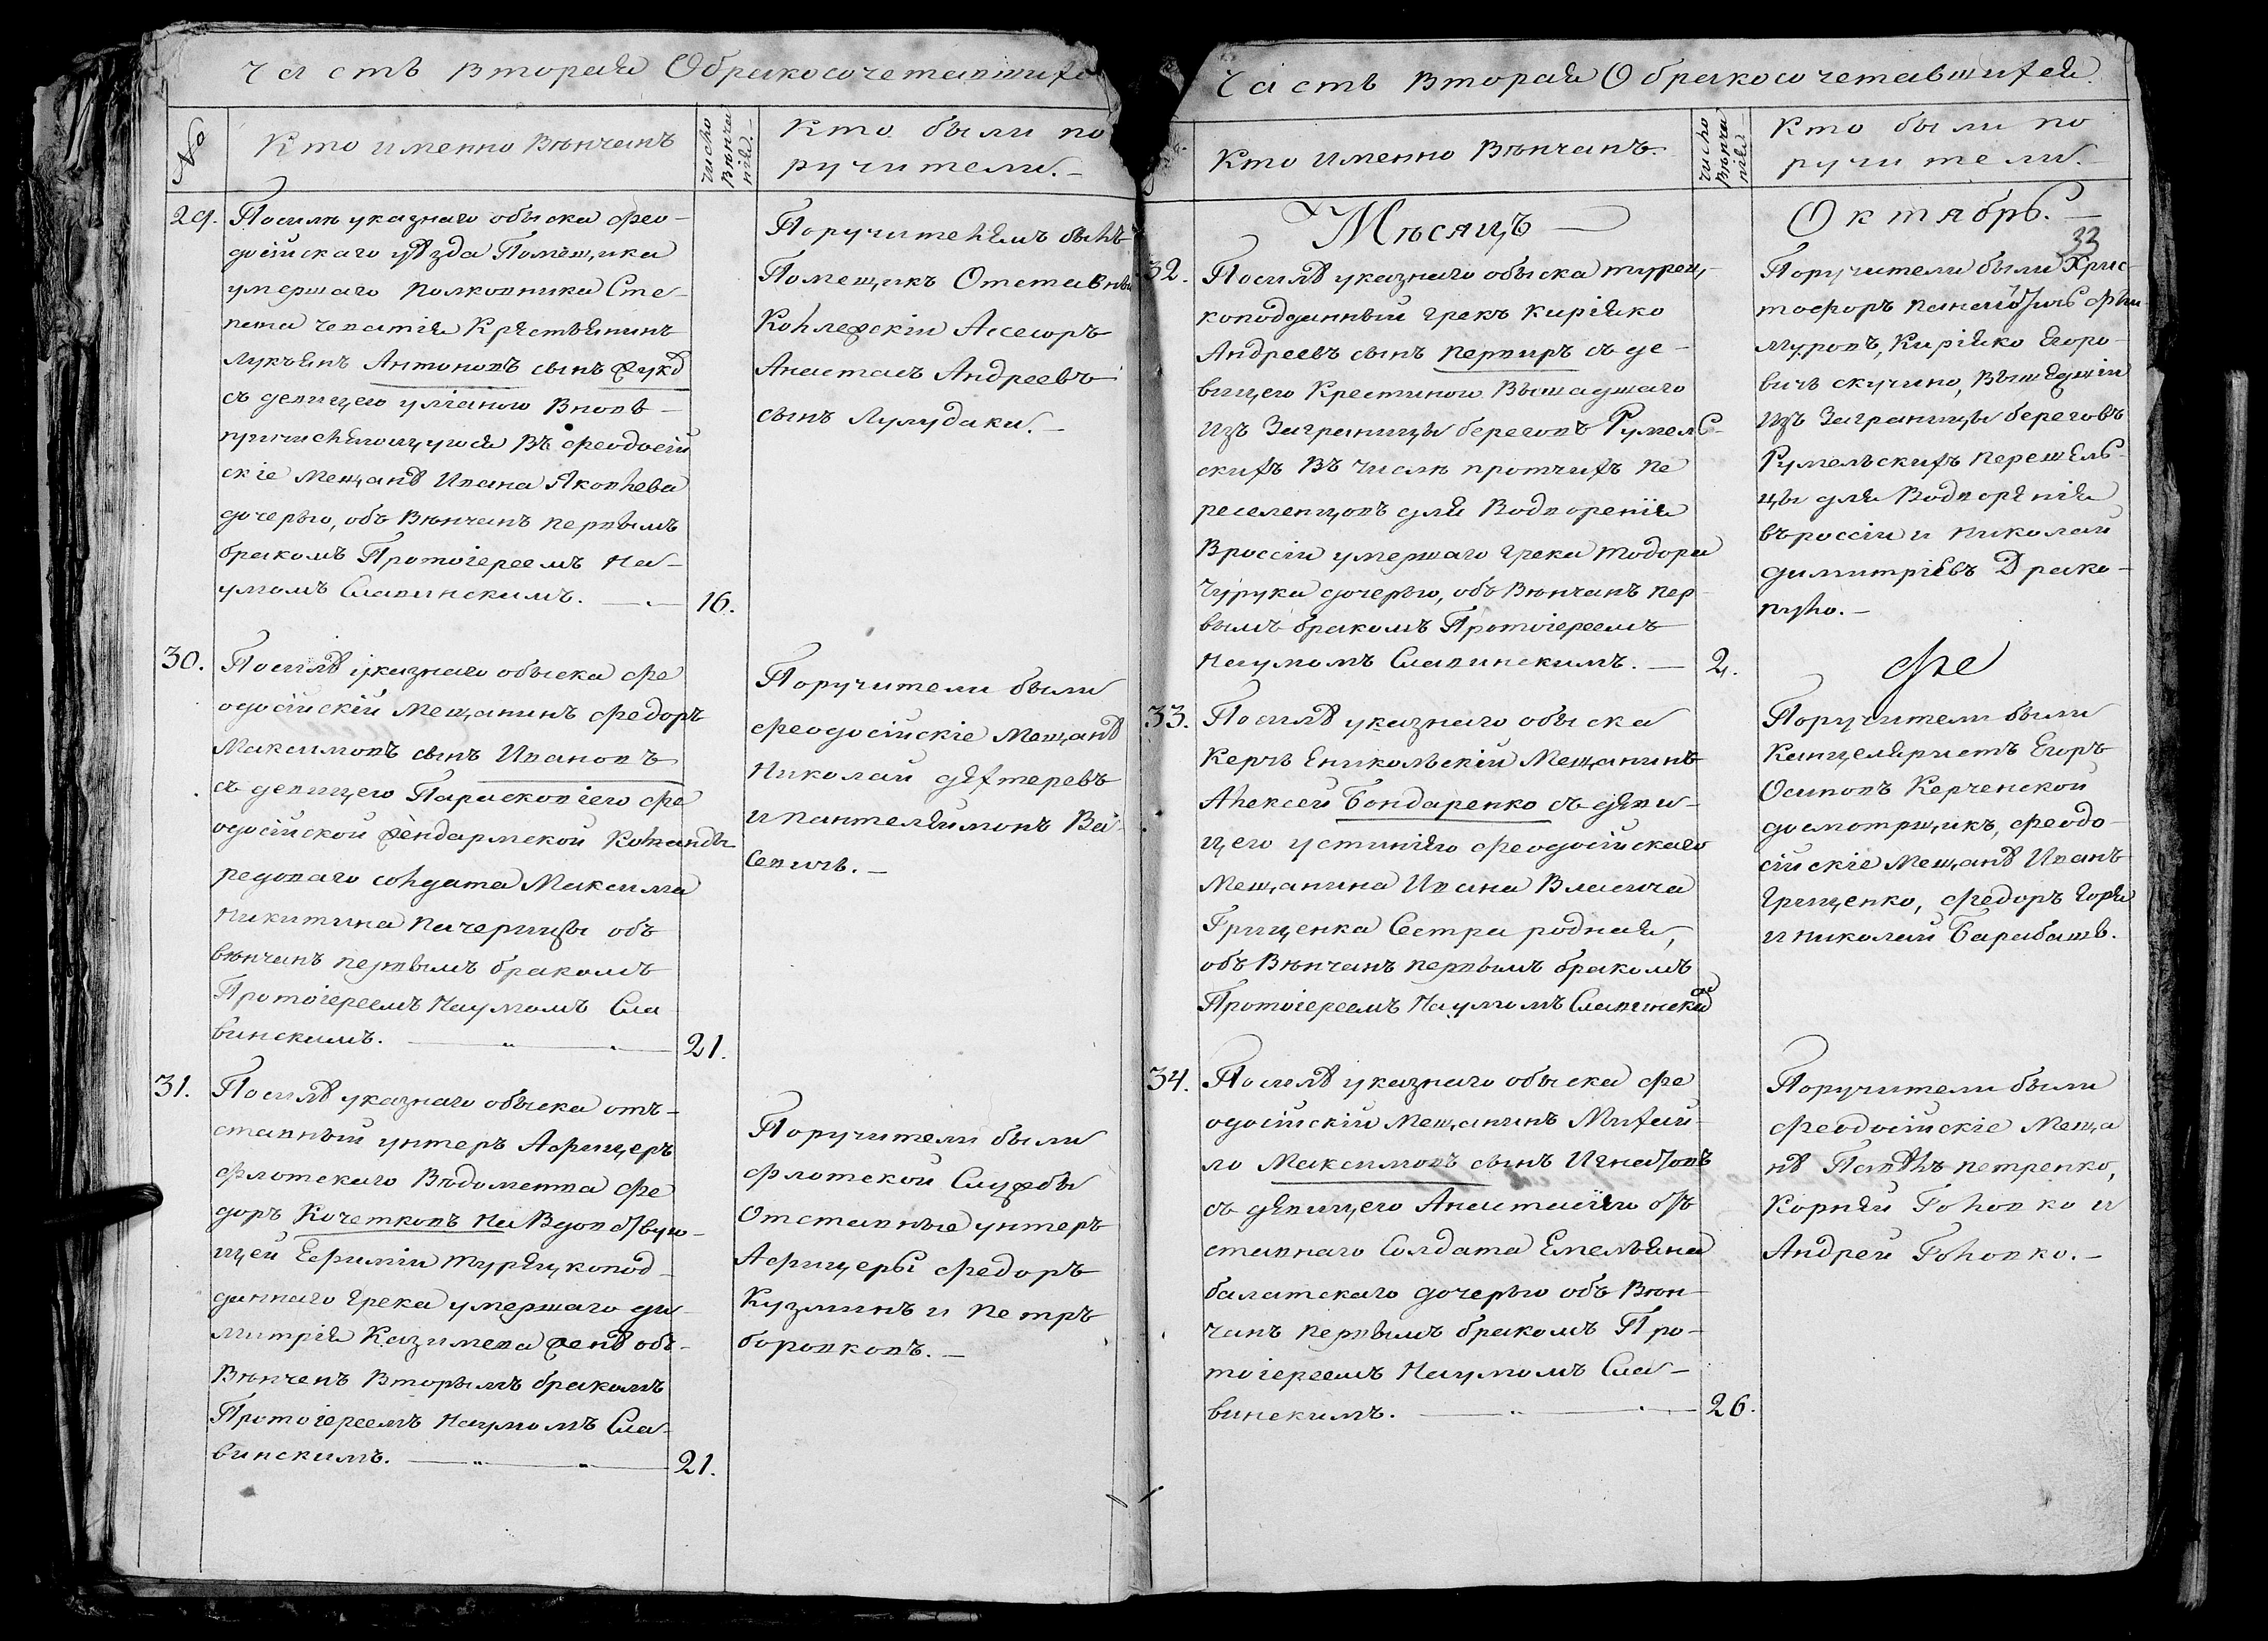 Часть вторая О бракосочетавшихся
№
Кто именно Вѣнчанъ
число Вѣнча нія.
Кто были по
ручители.
29.
Посилѣ указнаго обыска фео-
досійскаго уѣзда Помѣщика
умершаго полковника Сте-
Крестьянинъ
Лукьянъ Антоновъ сынъ
съ девицею уліаною Вновь
причислѣющуюся Въ феодосій
скіе мещанѣ Ивана Яковлева
дочерью, объ Вѣнчанъ первымъ
бракомъ Протоіереемъ На-
умомъ Славинскимъ.
16.
Поручителемъ былъ
Помещикъ Отставный
Колѣжскій Ассесоръ
Анастасъ Андреевъ
сынъ Лулудаки.
30.
Посилѣ указнаго обыска фе
одосійскій мещанинъ федоръ
Максимовъ сынъ Ивановъ
съ девицею Парасковіею фе
одосійской жендармской Команды
редоваго солдата Максима
Никитина Пачерицы объ
вѣнчанъ первымъ бракомъ
Протоіереемъ Наумомъ Сла
винскимъ.
21.
Поручители были
феодосійскіе мещанѣ
Николай дехтеревъ
и пантелѣймонъ
31.
Посилѣ указнаго обыска отъ-
ставный унтеръ Афицеръ
флотскаго Вѣдомства фе
доръ Кочетковъ на Вдовствую-
щей Ефиміи турецкопод-
даннаго грека умершаго ди-
митрія Казимева женѣ объ-
Вѣнченъ Вторымъ бракомъ
Протоіереемъ Наумомъ Сла-
винскимъ.
21.
Поручители были
флотской Службы
Отставные унтеръ
Афицеры федоръ
Кузминъ и Петръ
боровковъ.
Часть вторая О бракосочетавшихся.
Кто именно Вѣнчанъ.
число Вѣнча нія
Кто были по
ручители.
Мѣсяцъ
Октябрь.
33
32.
Посилѣ указнаго обыска турец-
коподданный грекъ Киріяко
Андреевъ сынъ Первиръ съ де-
вицею Крестиною Вышадшаго
изъ Заграницы береговъ Румель-
скихъ Въ числѣ протчихъ пе
реселенцовъ для Водворенія
Вроссіи умершаго грека тодора
Чурука дочерью, объ Вѣнчанъ пер-
вымъ бракомъ Протоіереемъ
Наумомъ Славинскимъ.
2.
Поручители были Крис-
тофоръ
Киріяко Егоро-
вичъ скучино, Вышедшіи
изъ Заграницы береговъ
Румельскихъ переселѣ-
цы для Водворѣнія
въроссіи и николай
димитріевъ Драко-
пуло.
фе
33.
Посилѣ указнаго обыска
Керчъ Еникольскій Мещанинъ
Алексей Бондаренко съ дѣви-
цею устиніею феодосійскаго
мещанина Ивана Власича
Грищенка Сестра родная,
объ Вѣнчанъ первымъ бракомъ
Протоіереемъ Наумомъ Славински
Поручители были
Канцеляристъ Егоръ
Осиповъ Керченской
досмотрщикъ, феодо-
сійскіе мещанѣ Иванъ
Грищенко, федоръ Горя
и николай Барабашъ.
34.
Посилѣ указнаго обыска фе
одосійскій мещанинъ Михай-
ло Максимовъ сынъ Игнатовъ
съ дѣвицею Анастасіею от
ставнаго Солдата Емельяна
балатскаго дочерью объ Вѣн-
чанъ первымъ бракомъ Про-
тоіереемъ Наумомъ Сла-
винскимъ.
26.
Поручители были
феодосійскіе меща
нѣ Павѣлъ петренко,
Корнѣй Головко и
Андрей Головко.